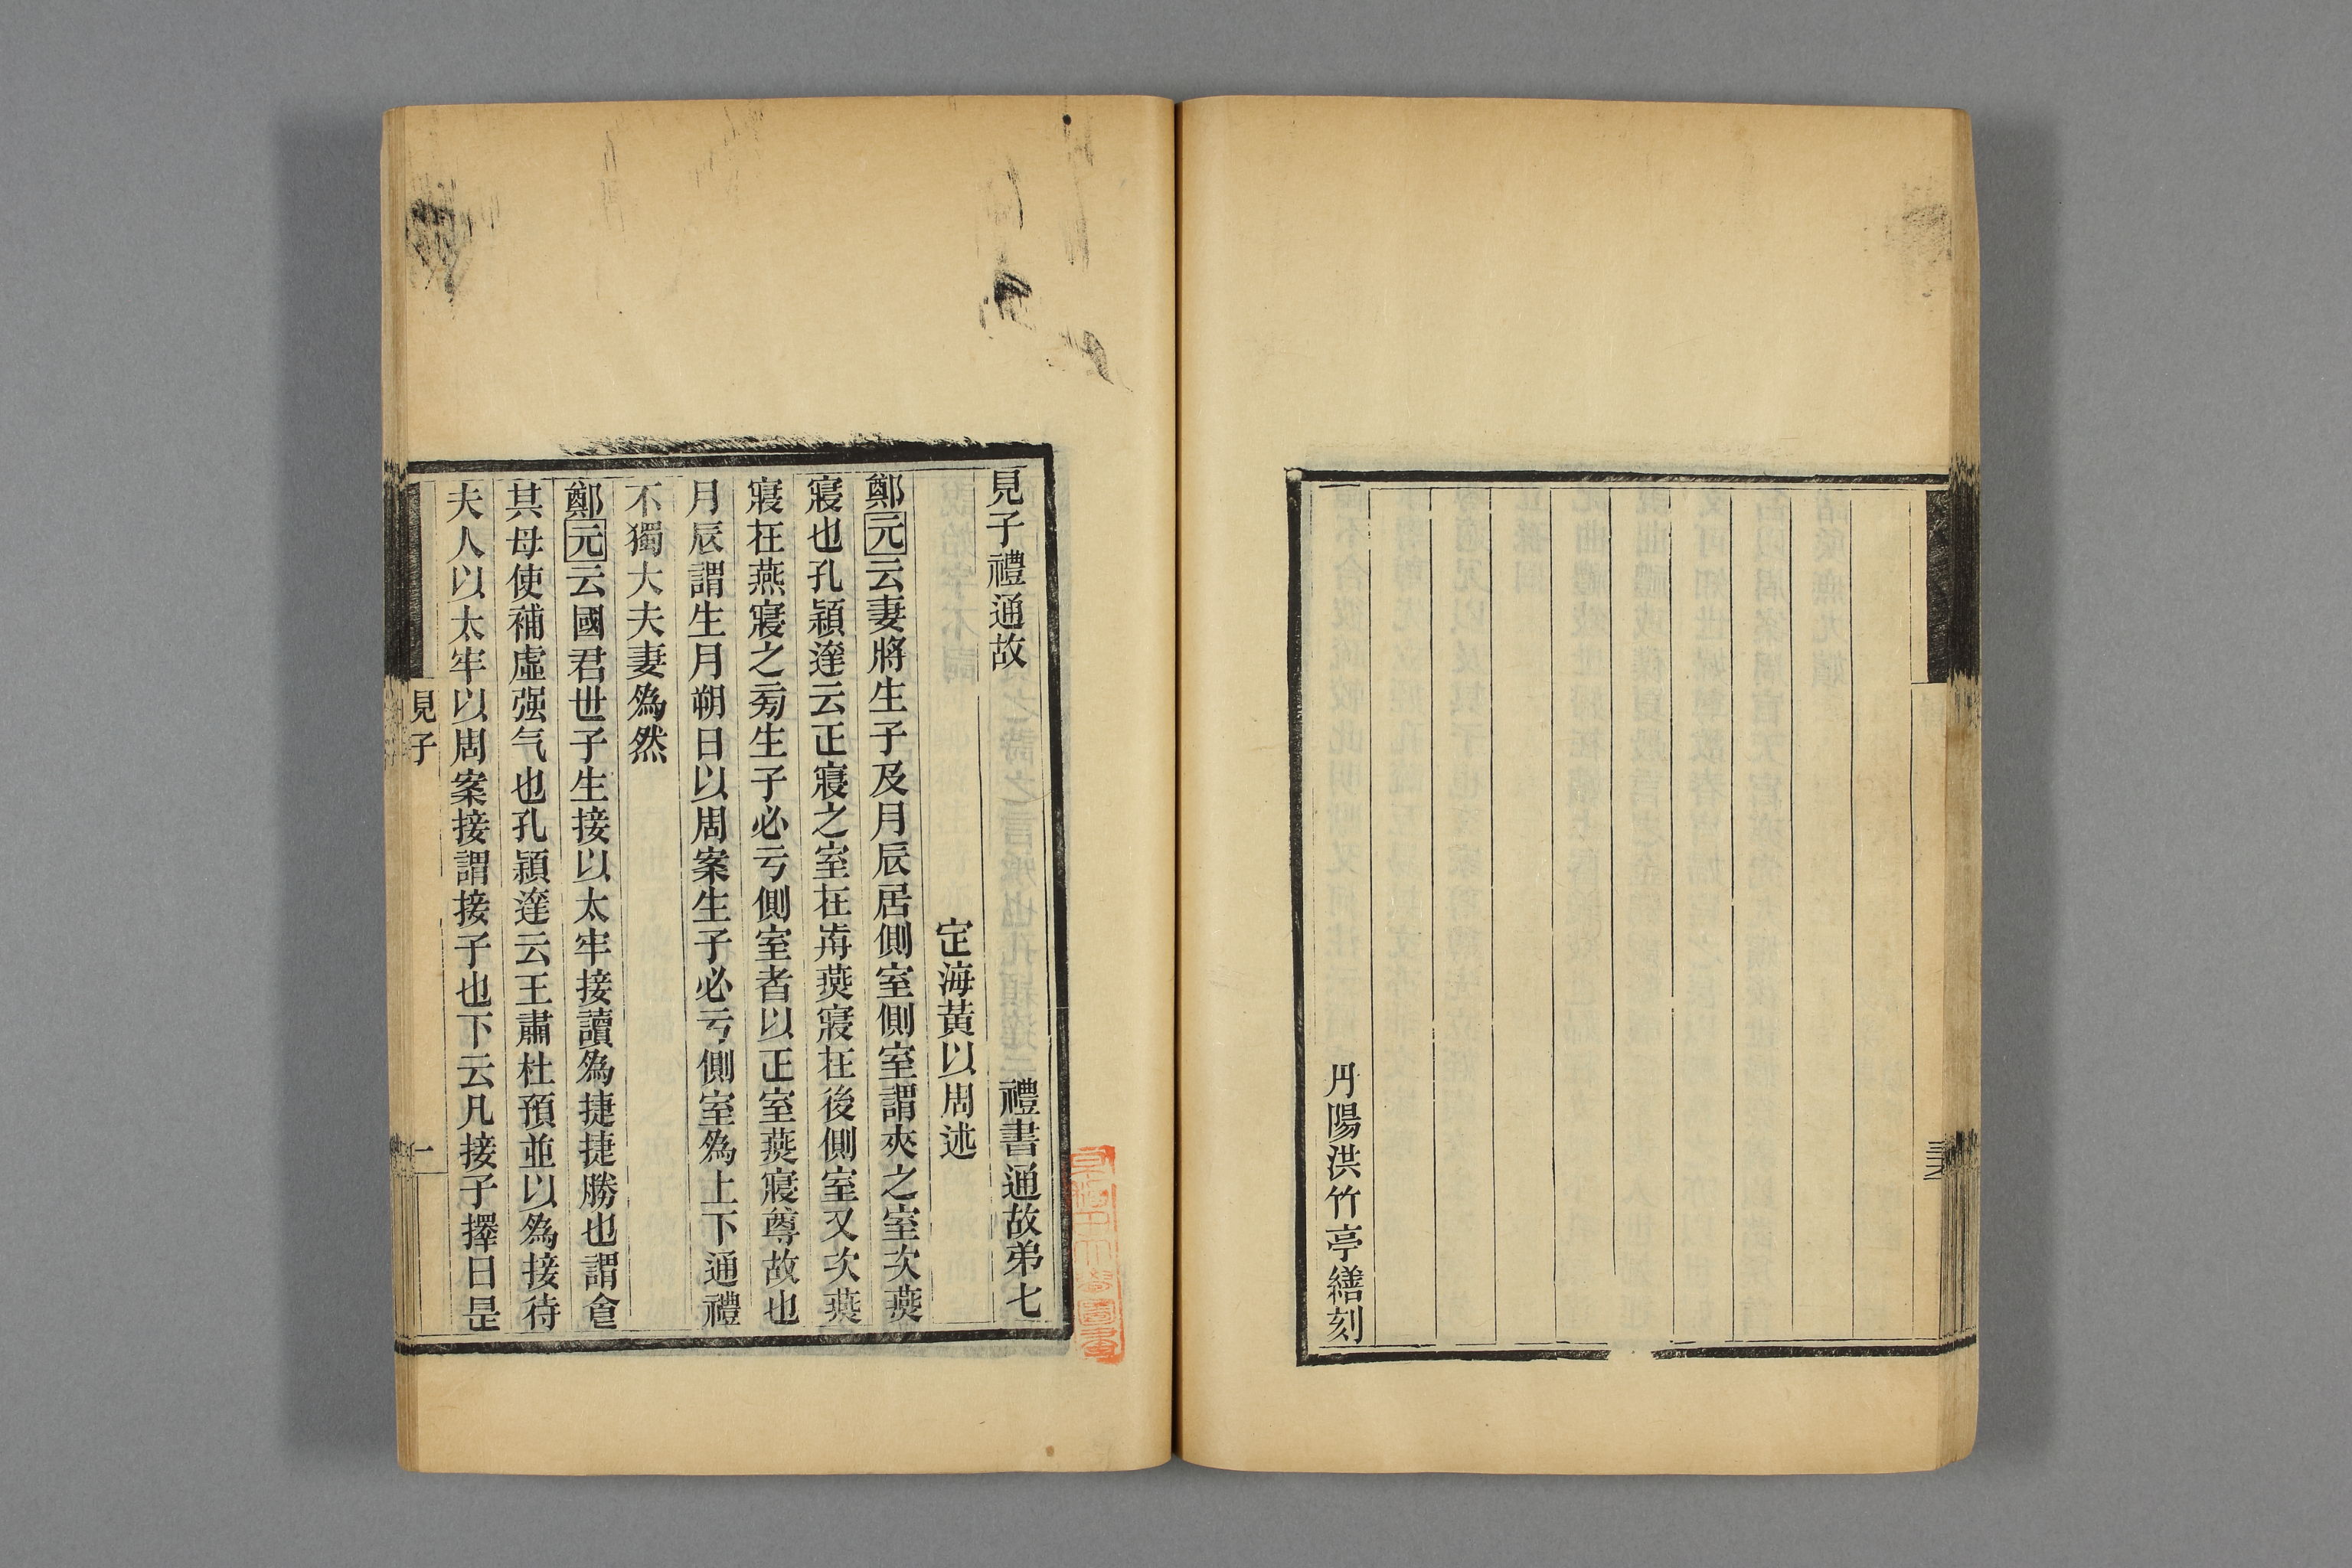 丹陽洪竹亭繕刻
見子禮通故 禮書通故弟七
定海黃以周述
鄭元云妻將生子及月辰居側室側室謂夾之室次燕
寢也孔穎達云正寢之室在歬燕寢在後側室又次燕
寢在燕寢之㫄生子必亏側室者以正室燕寢尊故也
月辰謂生月朔日以周案生子必亏側室為上下通禮
不獨大夫妻為然
鄭元云國君世子生接以太牢接讀為捷捷勝也謂食
其母使補虛强气也孔穎達云王肅杜預並以為接待
夫人以太牢以周案接謂接子也下云凡接子擇日是
見子
一